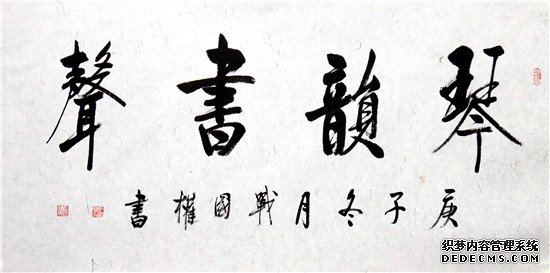 琴韻書聲
庚子冬月戰國權書
织梦内容管理系统
DEDECMS.COM